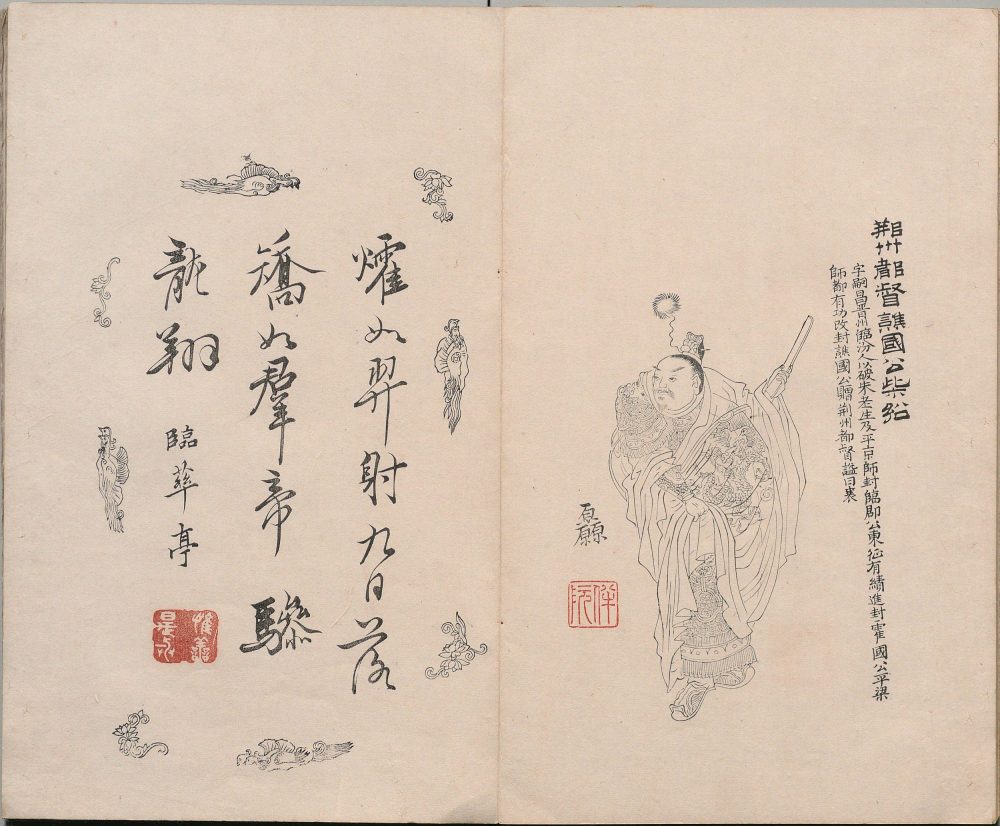 荊州都督譙國公柴紹
字嗣昌晉州臨汾人以破朱老生及平京師封臨郡公東征有績進封霍國公平梁
師都有功改封譙國公贈荊州都督諡曰襄
伴阮
㸌如羿射九日落
矯如羣帝驂
龍翔
臨華亭